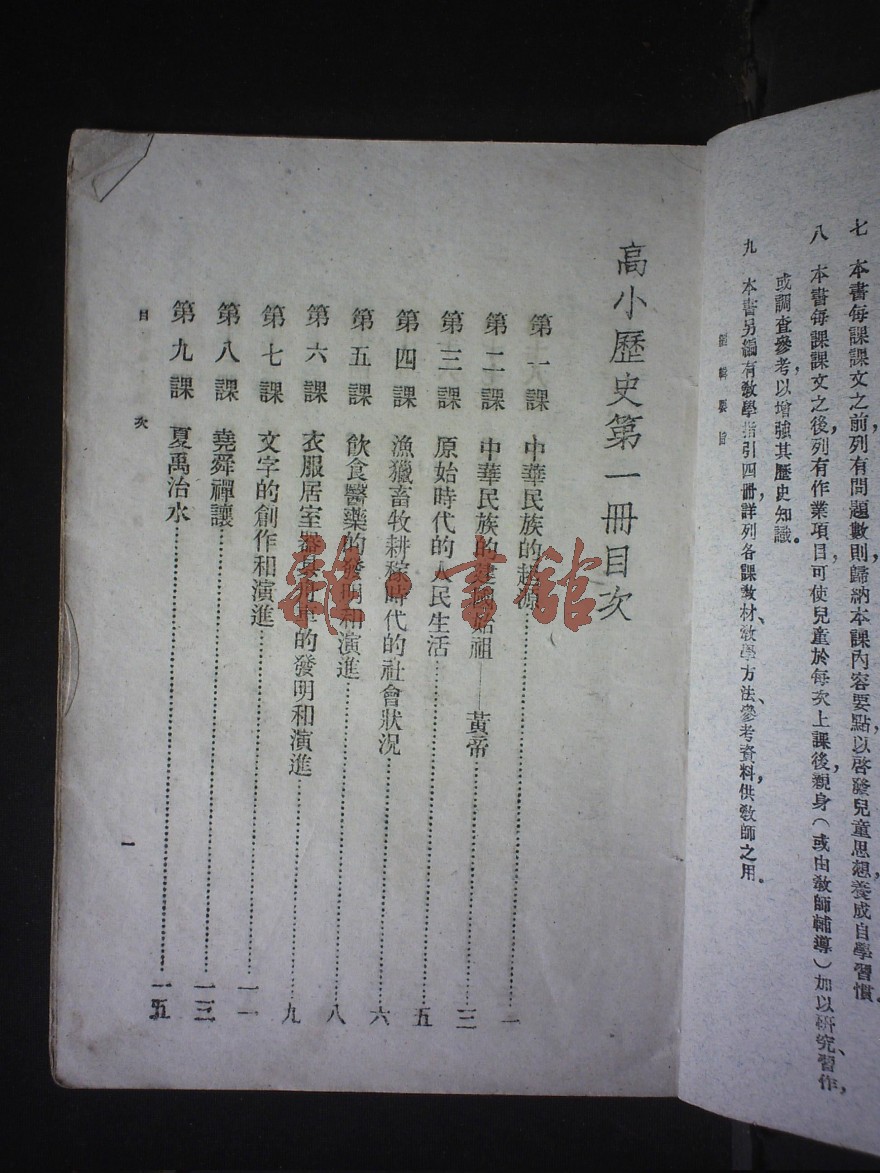 七　本書每課課文之前，列有問題數則，歸納本課內容要點，以啓發兒童思想，養成自學習慣。
八　本書每課課文之後，列有作業項目，可使兒童於每次上課後，親身（或由敎師輔導）加以硏究、習作，
或調查參考，以增強其歷史知識。
九　本書另編有敎學指引四冊，詳列各課敎材、敎學方法、參考資料，供敎師之用。
編輯要旨
高小歷史第一冊目次
第一課　中華民族的起源……一
第二課　中華民族的建國始祖——黃帝……三
第三課　原始時代的人民生活……五
第四課　漁獵畜牧耕稼時代的社會狀況……六
第五課　飮食醫藥的發明和演進……八
第六課　衣服居室器具舟車的發明和演進……九
第七課　文字的創作和演進……一一
第八課　堯舜禪讓……一三
第九課　夏禹治水……一五
目次
一
雜·書館